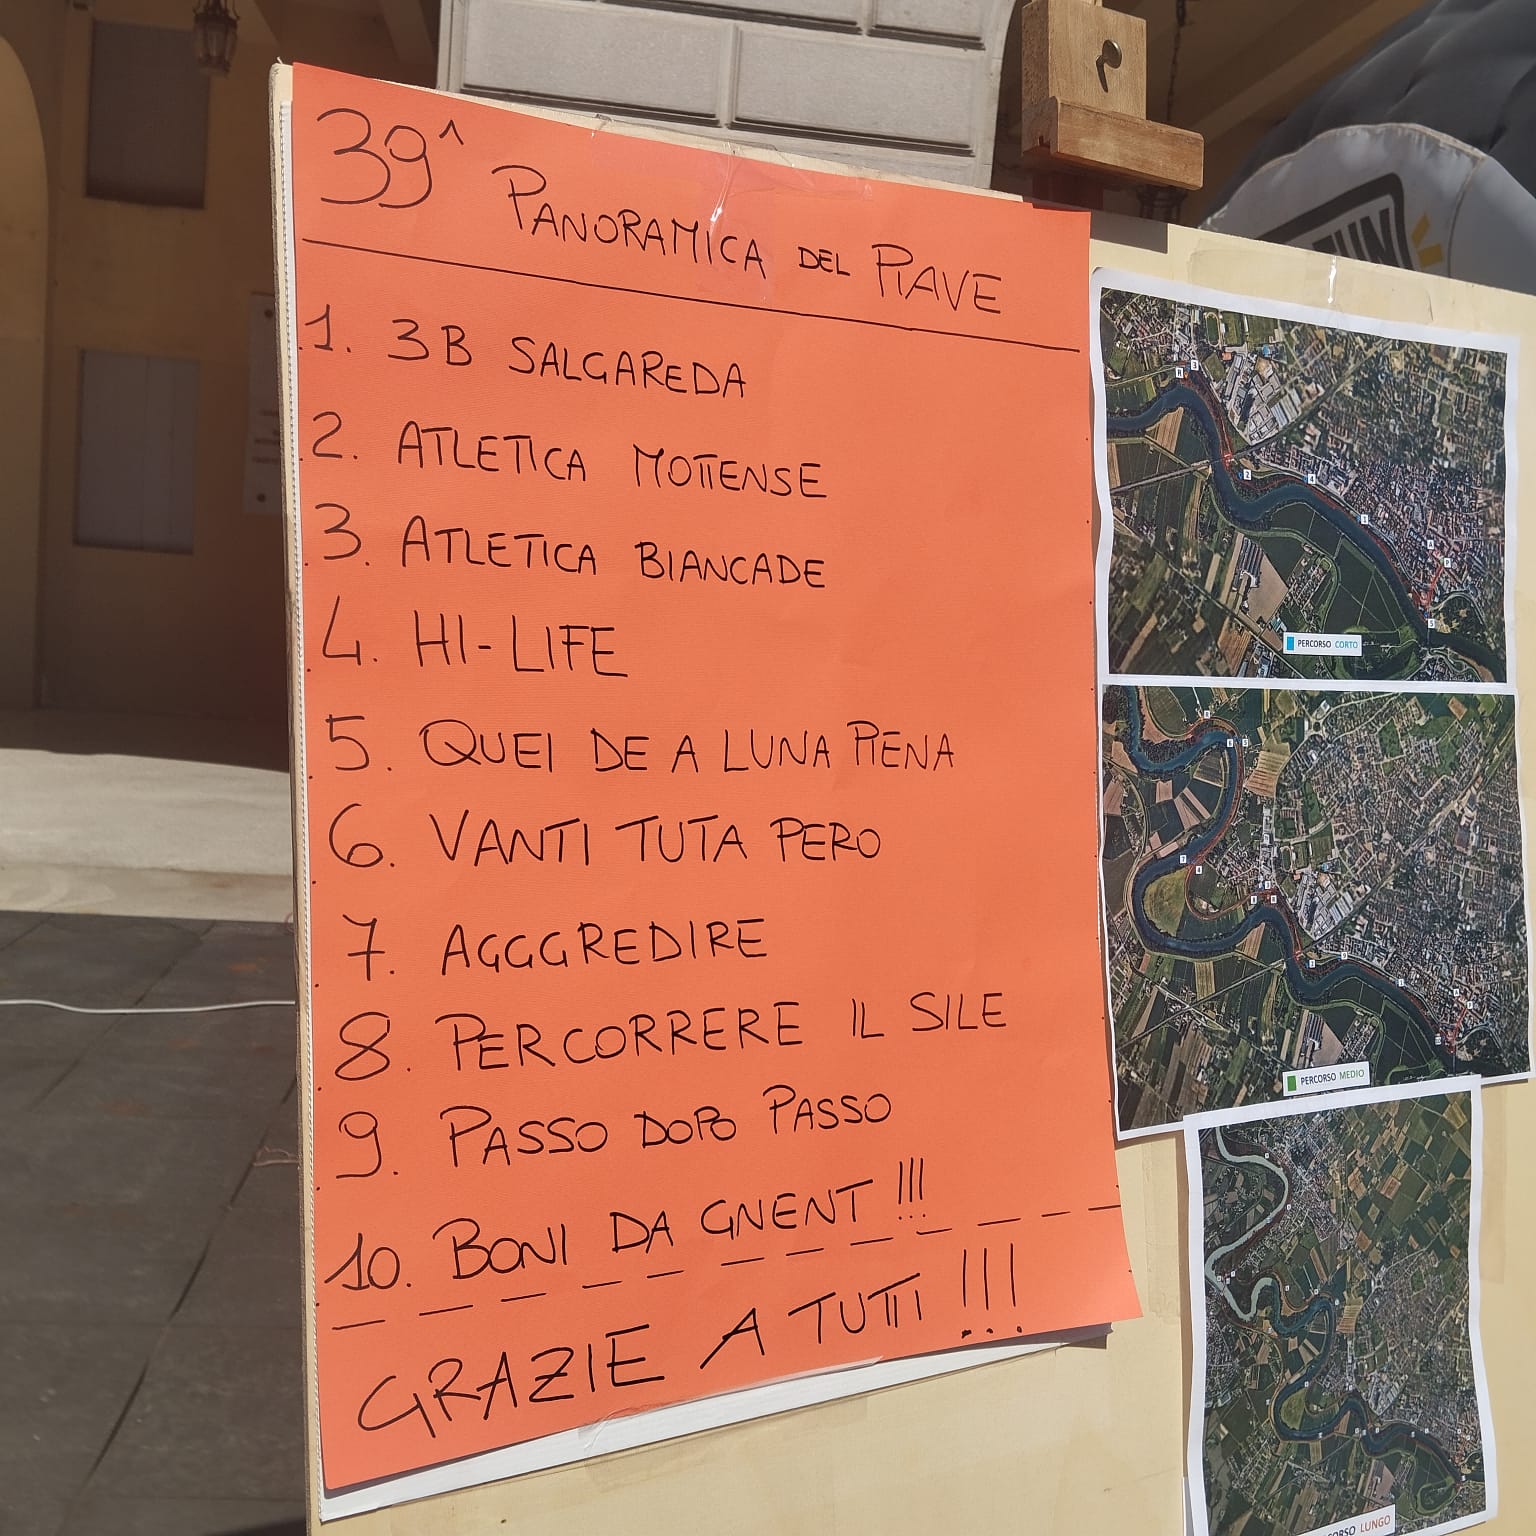 39^ PANORAMICA DEL PIAVE
1. 3B SALGAREDA
2. ATLETICA MOTTENSE
3. ATLETICA BIANCADE
4. HI-LIFE
5. QUEI DE A LUNA PIENA
6. VANTI TUTA PERO
7. AGGGREDIRE
8. PERCORRERE IL SILE
9. PASSO DOPO PASSO
10. BONI DA GNENT !!!
GRAZIE A TUTTI !!!
PERCORSO CORTO
PERCORSO MEDIO
LUNGO